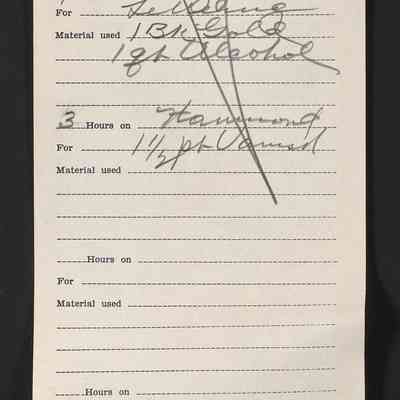 For Lettering
Material used 1 Bk Gold
1 qt Alcohol
3 Hours on Hammond
For 1 1/2 pt Varnish
Material used
Hours on
For
Material used
Hours on